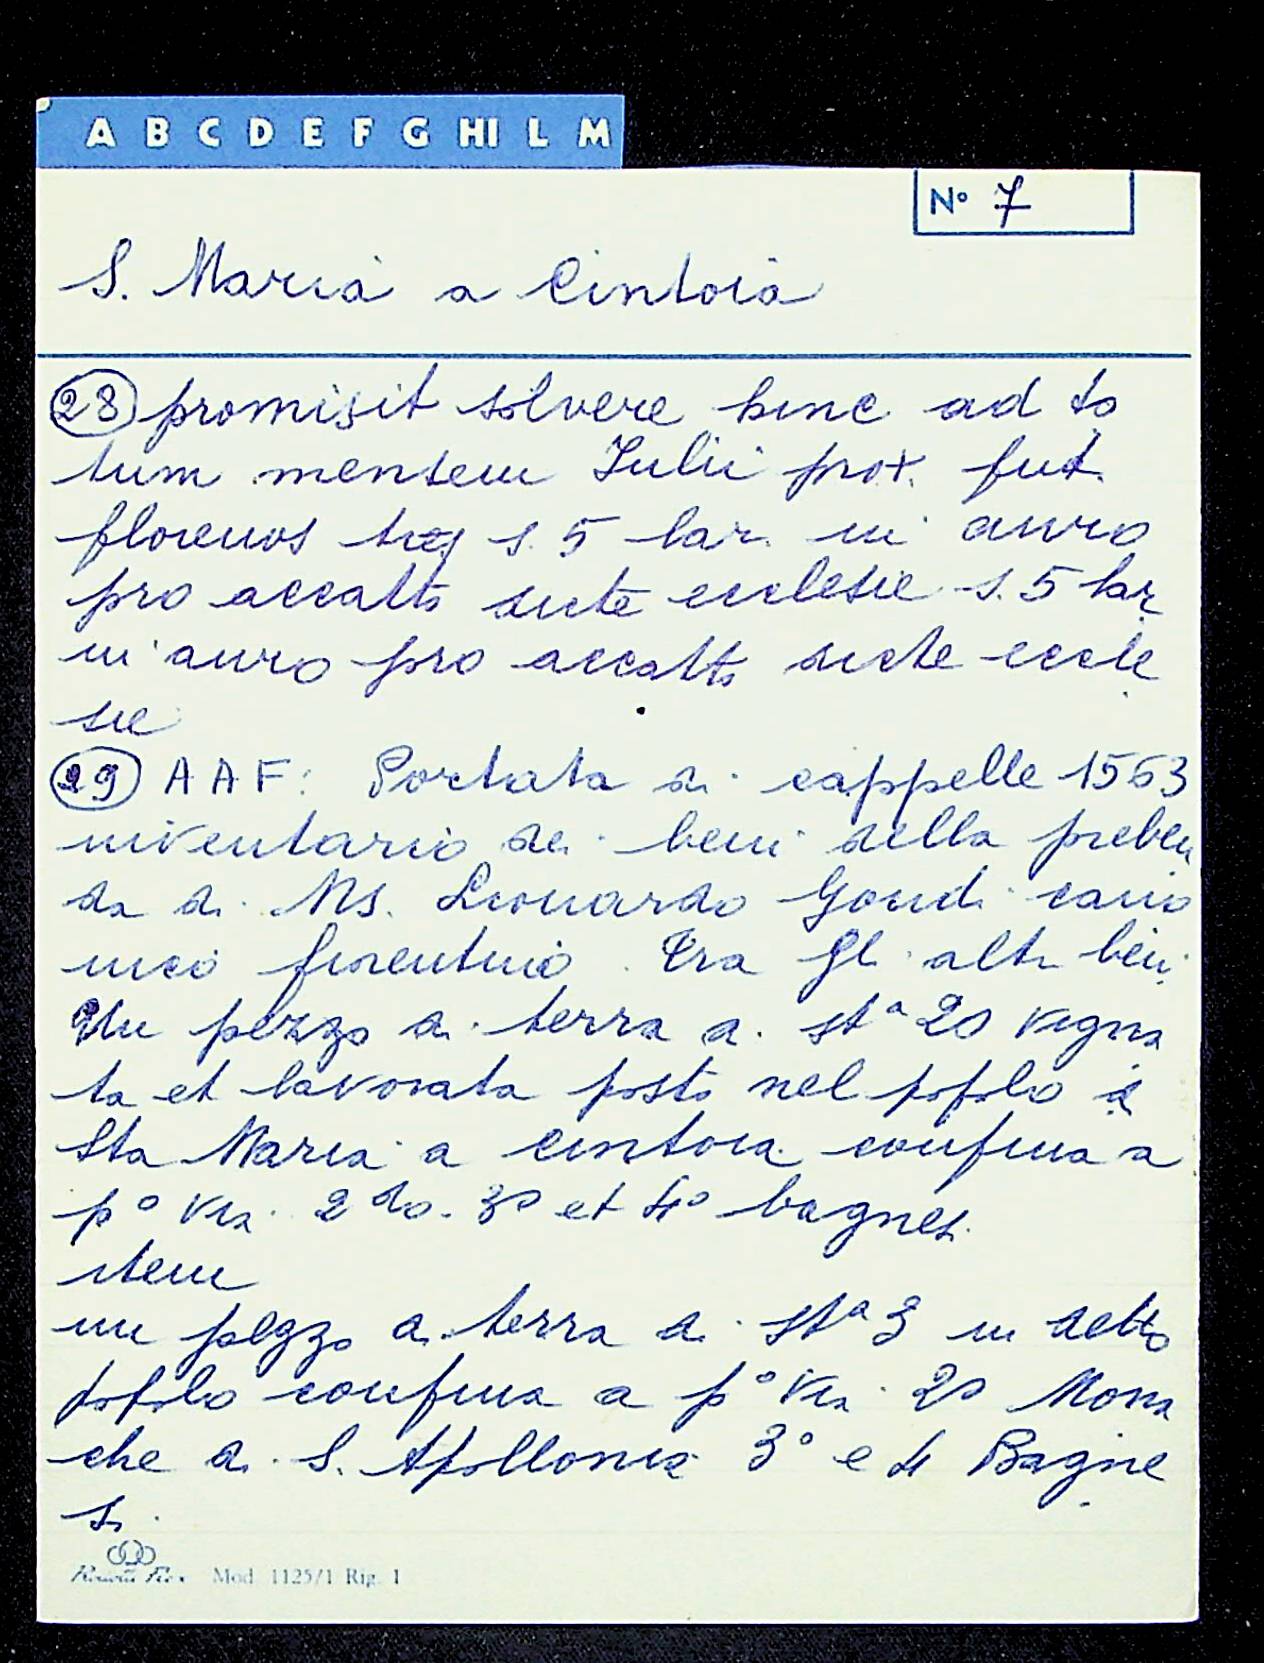 A B C D E F G HI L M
N° 7
S. Maria a Cintoia
28 promisit solvere hinc ad to
tum mensem Iulii prox. fut.
florenos tres s. 5 lar. in auro
pro accatto dicte ecclesie s. 5 lar
in auro pro accatto dicte eccle
sie
29 AAF: Portata di cappelle 1563
inventario dei beni della preben
da di Ms. Leonardo Gondi cano
nico fiorentino. Tra gli altri beni
Un pezzo di terra di st.a 20 vigna
ta et lavorata posto nel popolo di
Sta Maria a Cintoia confina a
p° via 2do. 3° et 4° bagnesi
item
un pezzo di terra di st.a 3 in detto
popolo confina a p° via 2° Mona
che di S. Apollonia 3° e 4 Bagne
si.
Mod. 1125/1 Rig. 1